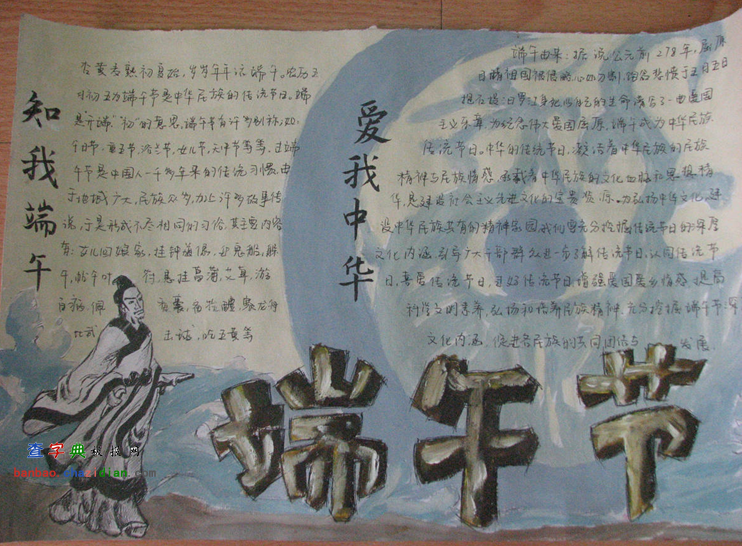 知我端午
杏黄杏熟初夏始，岁岁年年话端午。农历五
月初五为端午节是中华民族的传统节日。端
是“开端”“初”的意思，端午节有许多别称，如：
午日节、重五节，浴兰节，女儿节，天中节等等，过端
午节是中国人二千多年来的传统习惯，由
于地域广大，民族众多，加上许多故事传
说，于是形成不尽相同的习俗，其主要内容
有：女儿回娘家，挂钟馗像，
午，符，悬挂菖蒲、艾草，游
百病，佩香囊，赛龙舟
比武，吃五黄等
爱我中华
端午由来：据说公元前278年，屈原
目睹祖国
抱石投汨罗江
主义乐章，为纪念伟大爱国屈原，端午成为中华民族
传统节日。中华的传统节日，凝结着中华民族的民族
精神与民族情感，承载着中华民族的文化血脉和思想精
华，是建设社会主义先进文化的宝贵资源。为弘扬中华文化，建
设中华民族共有的精神家园我们要充分挖掘传统节日的深厚
文化内涵，引导广大干部群众进一步了解传统节日、认同传统节
日、喜爱传统节日、过好传统节日增强爱国爱乡情感，提高
道德文明素养，弘扬和培养民族精神，充分挖掘端午节深
文化内涵，促进各民族的共同团结与发展
端午节
查字典 板报网
banbao.chazidian.com